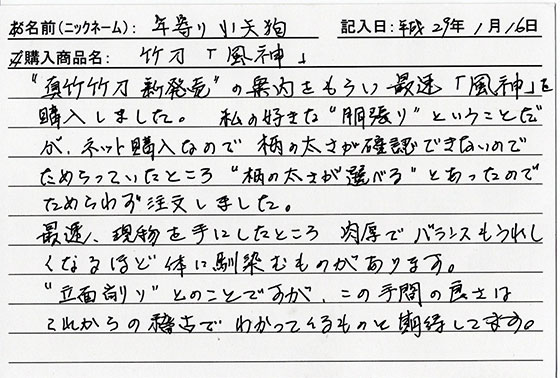 お名前(ニックネーム): 年寄り小天狗 記入日:平成29年1月16日
ご購入商品名: 竹刀「風神」
"真竹竹刀 新発売"の案内をもらい 最速「風神」を
購入しました。 私の好きな"胴張り"ということだ
が、ネット購入なので 柄の太さが確認できないので
ためらっていたところ "柄の太さが選べる"とあったので
ためらわず注文しました。
最速、現物を手にしたところ 肉厚で バランスもうれし
くなるほど 体に馴染むものがあります。
"立面削り"とのことですが、この手間の良さは
これからの稽古で わかってくるものと期待してます。